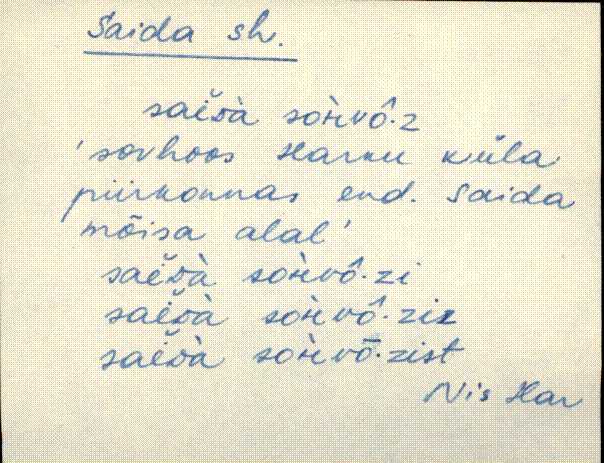 Saida sh.
saĕdà sòhvô·z
'sovhoos Harku küla
piirkonnas end. Saida
mõisa alal'
saĕdà sòhvô·zi
saĕdà sòhvô·ziz
saĕdà sòhvō·zist
Nis Har